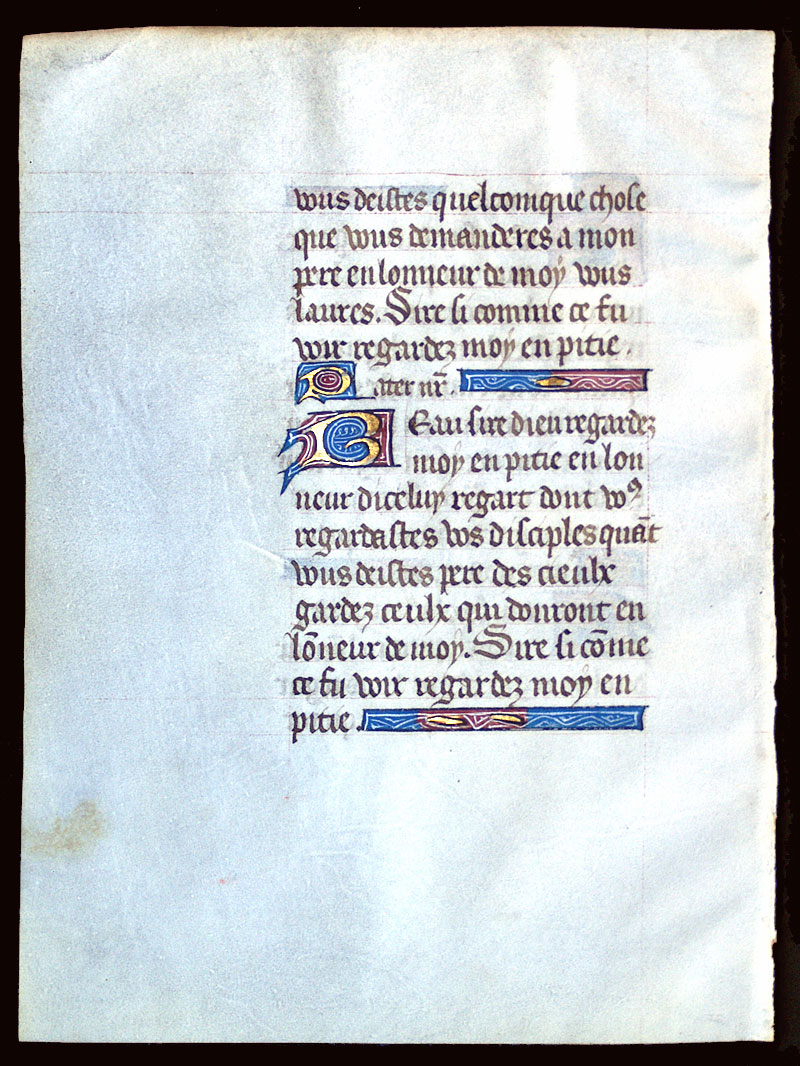 vous deistes quelconque chose
que vous demanderes a mon
pere en lonneur de moy vous
laures. Sire si comme ce fu
voir regardez moy en pitie.
Pater nr̄.
Beau sire dieu regardez
moy en pitie en lon
neur diceluy regart dont voꝰ
regardastes vos disciples quāt
vous deistes pere des cieulx
gardez ceulx qui donront en
lōneur de moy. Sire si cōme
ce fu voir regardez moy en
pitie.